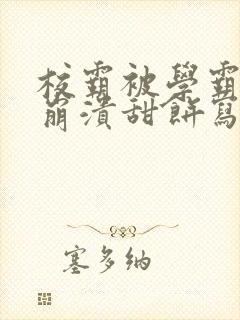 校霸被學霸
崩潰甜餅寫
塞多納